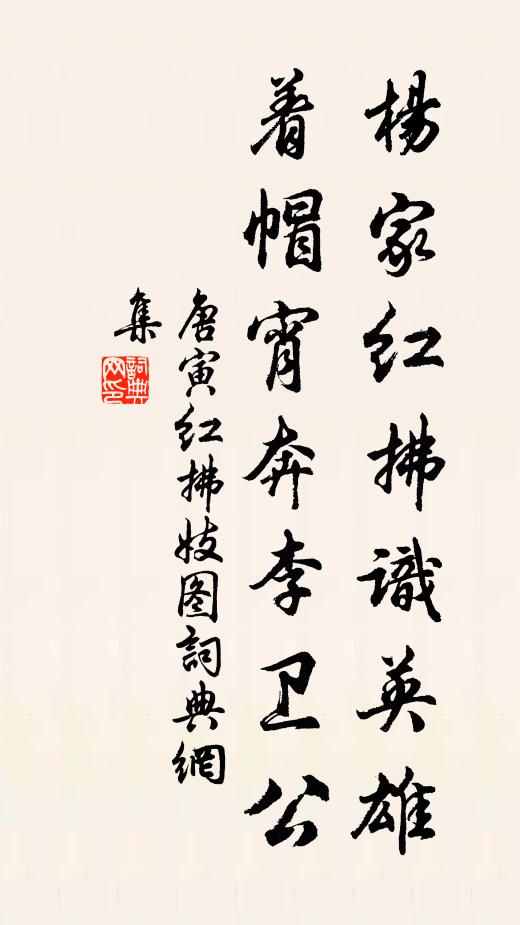 楊家红拂識英雄
着帽宵奔李卫公
唐寅红拂妓图詞典網
集
詞典
网印